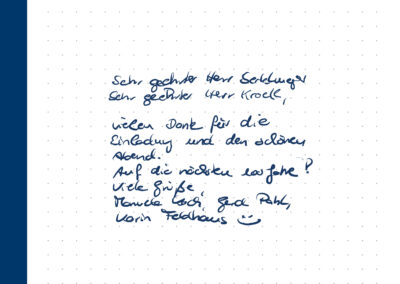 Sehr geehrter Herr
Sehr geehrter Herr Kroell,
vielen Dank für die
Einladung und den schönen
Abend.
Auf die nächsten 100 Jahre!
Viele Grüße,
Manuela Gerd Pahl,
Karin Feldhaus